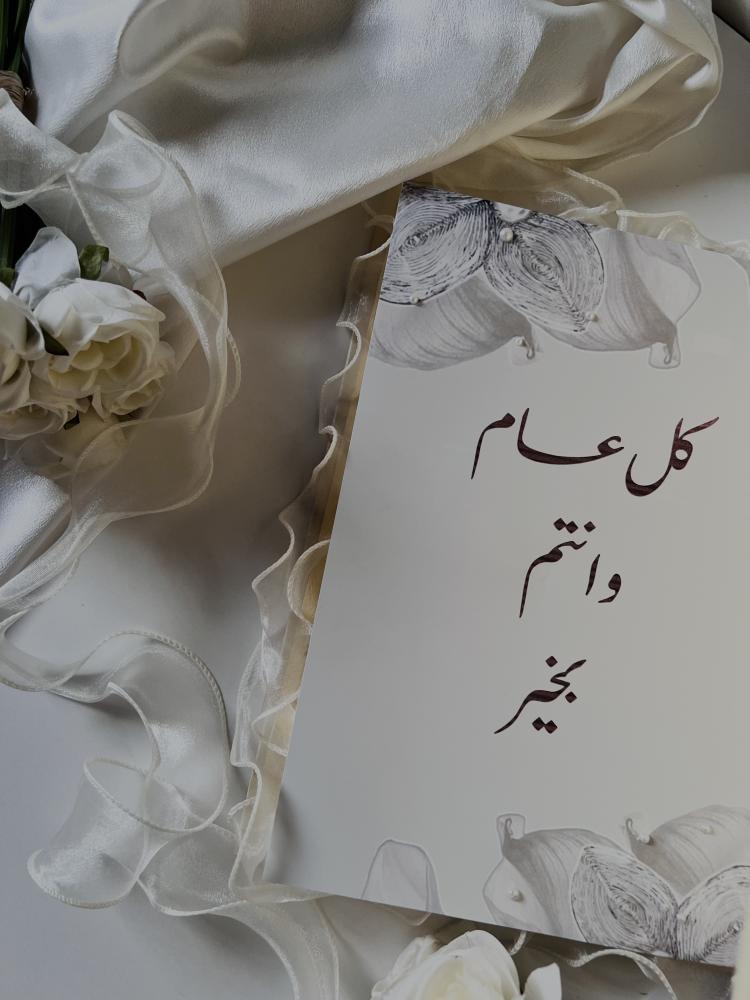 كل عام
وانتم
بخير